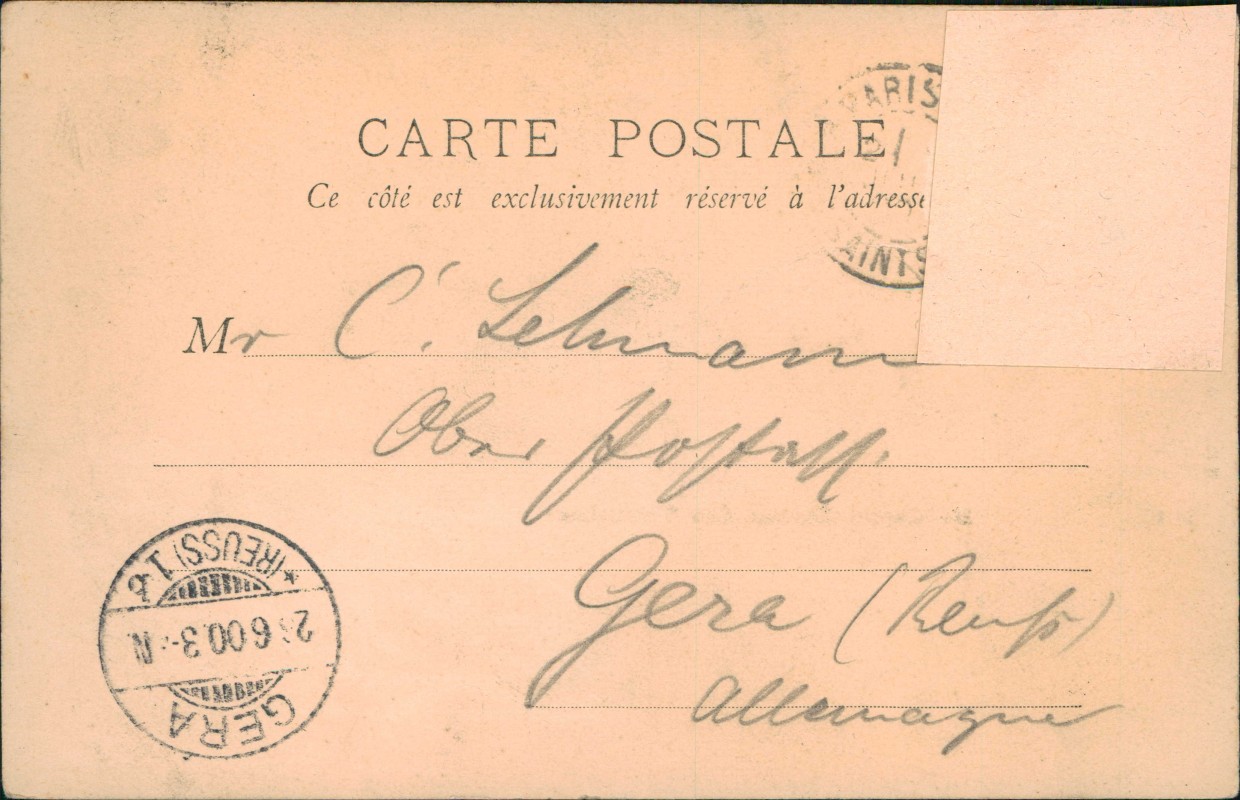 CARTE POSTALE
Ce côté est exclusivement réservé à l'adresse
PARIS
AINTS
Mr C. Lehmann
Ober
Gera (Reuß)
Allemagne
GERA
6 00. 3- N.
* (REUSS) 1 b